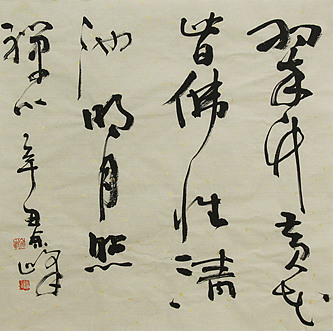 翠竹黄花
皆佛性清
池明月照
禪心 辛丑